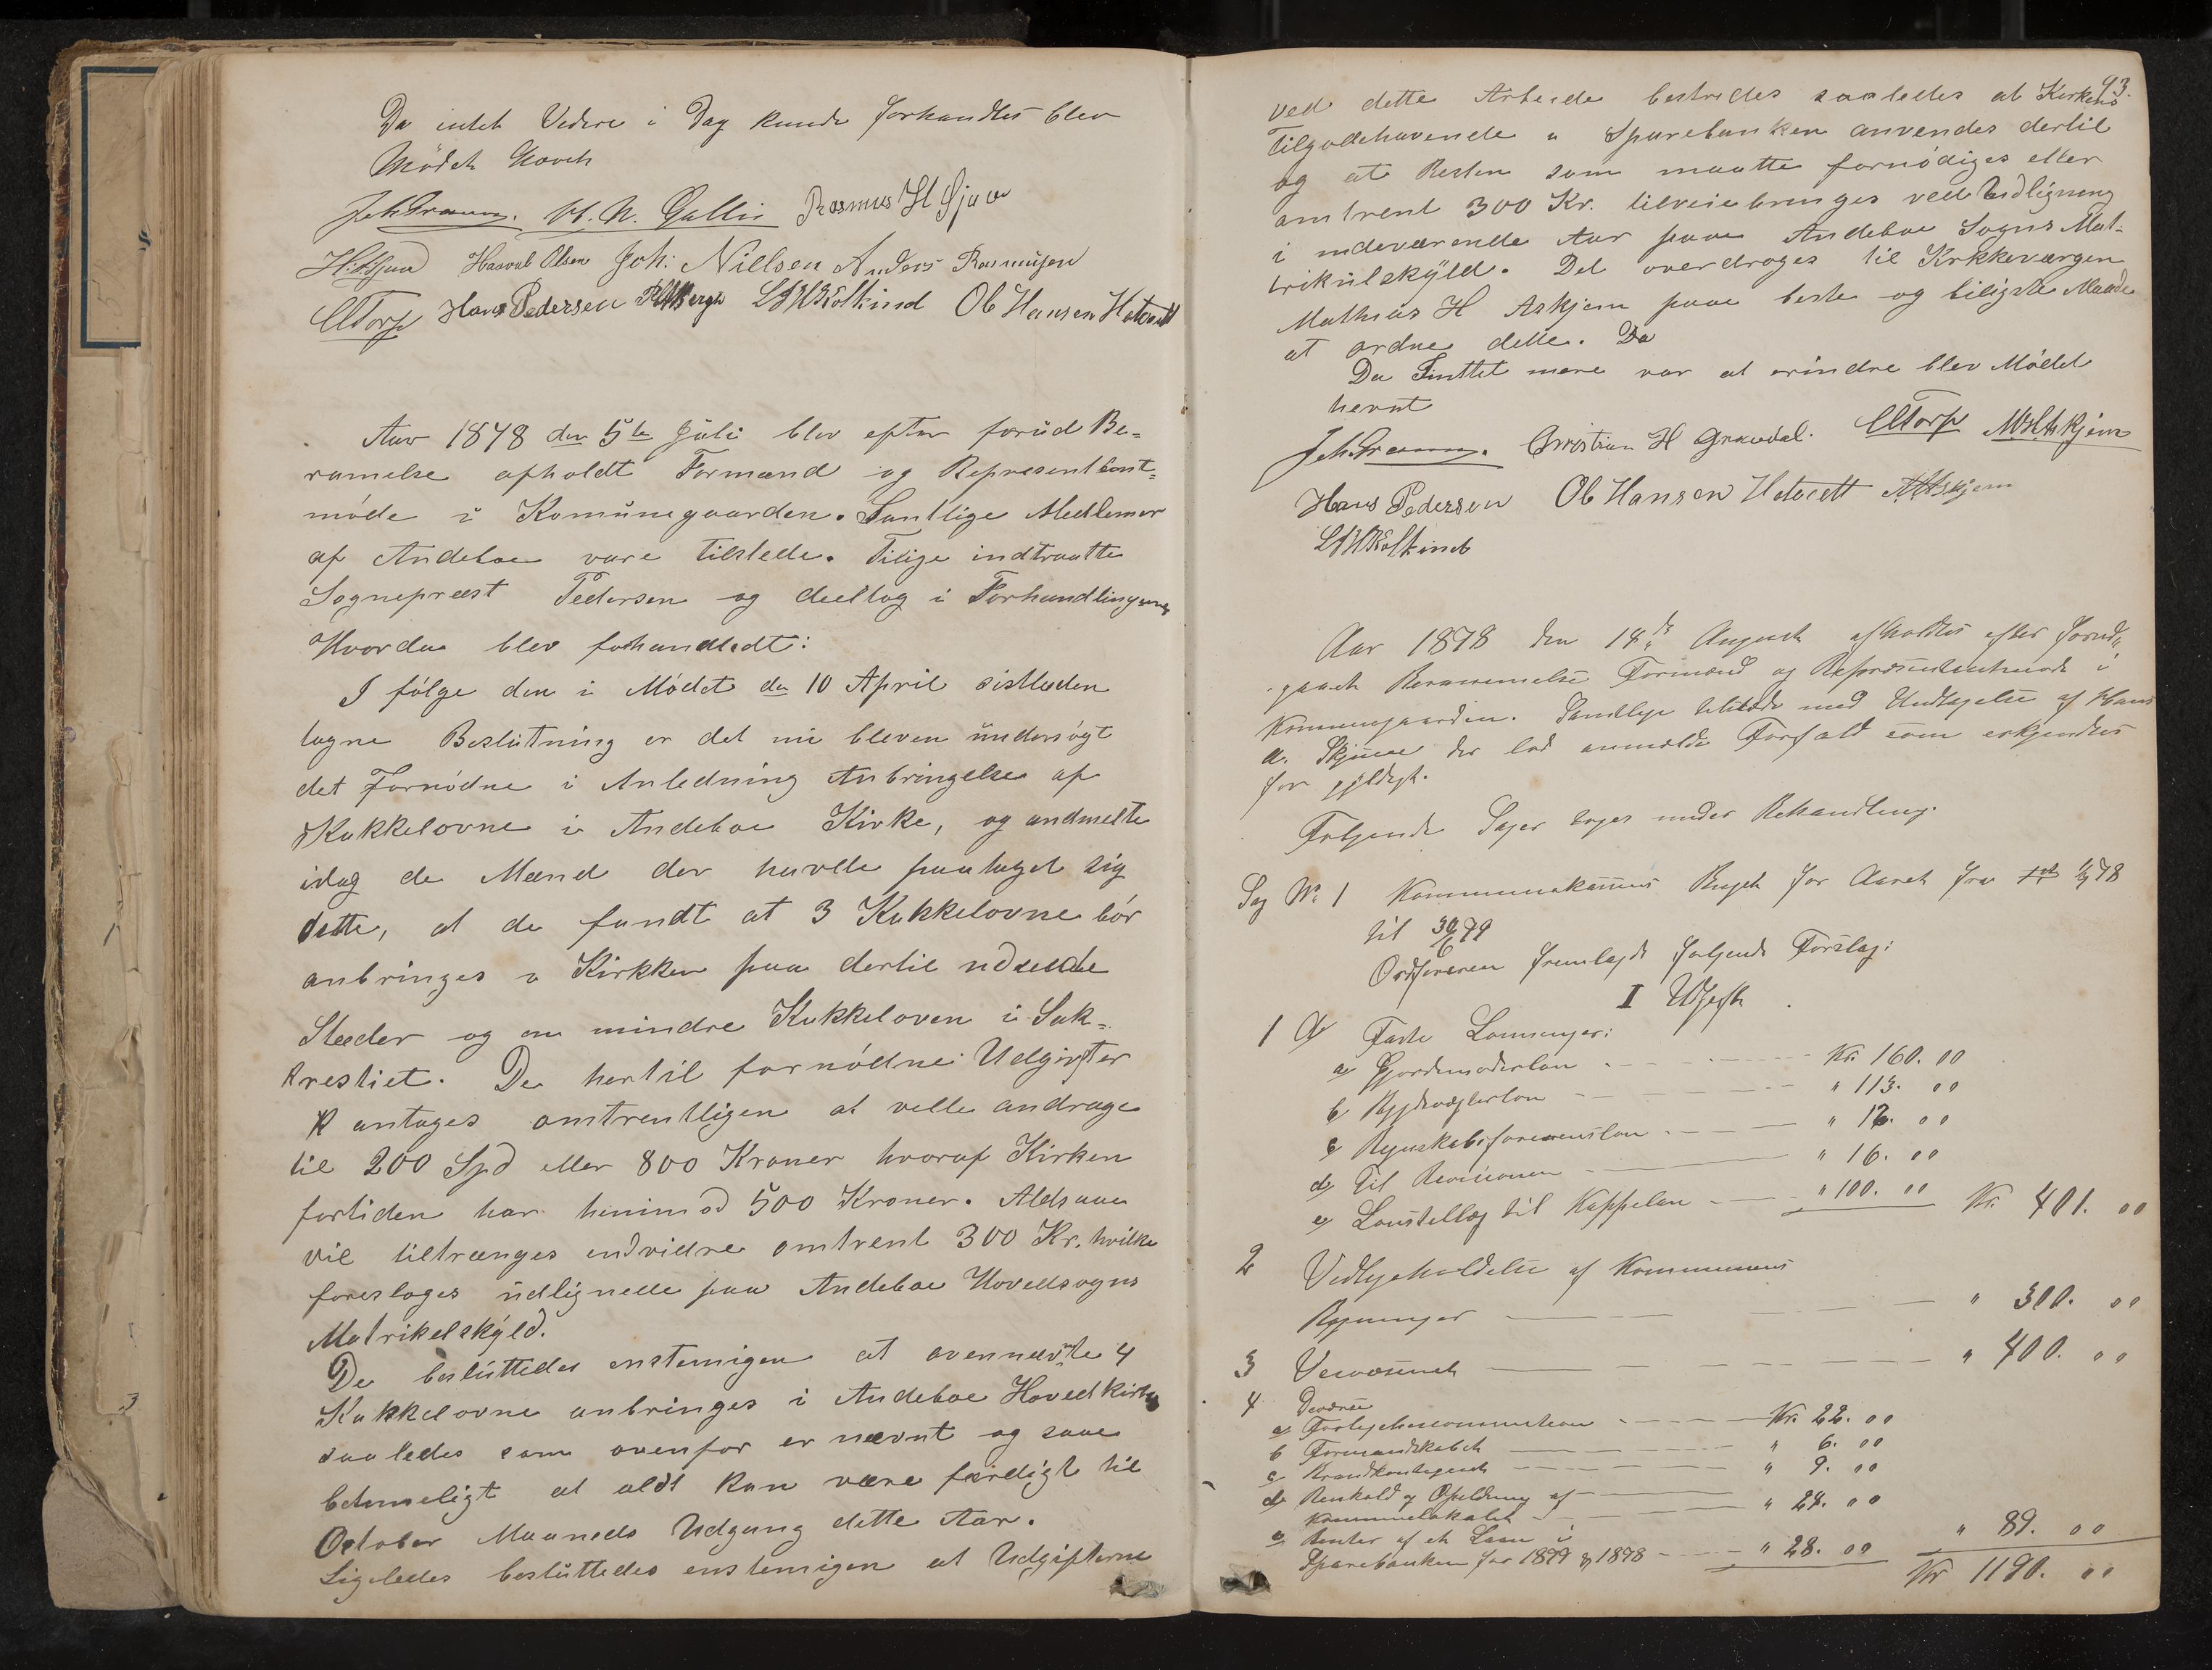 Da intet Videre i Dag kunde forhandles blev
Mödet hævet
Rasmus H Gjein
Haavald Olsen Joh: Nielsen Anders Rasmusen
CTorp Hans Pedersen Ole Hansen Hotvedt
Aar 1878 den 5te Juli blev efter forud Be=
ramelse afholdt Formænd og Representant=
möde i Komunegaarden. Samtlige Medlemer
af Andeboe vare tilstede. Tilige indtraatte
Sognepræst Pedersen og deeltog i Forhandlingerne
Hvorda blev forhandledt:
I fölge den i Mödet den 10 April sistleden
tagne Beslutning er det nu bleven undersögt
det Fornödne i Anledning Anbringelse af
Kakkelovne i Andeboe Kirke, og andmelte
idag de Mænd der havde paataget sig
dette, at de fandt at 3 Kakkelovne bör
anbringes i Kirkken paa dertil udseede
Stæder og en mindre Kakkeloven i Sak=
krestiet. De hertil fornödne Udgivter
antages omtrentligen at ville andrage
til 200 Spd eller 800 Kroner hvoraf Kirken
fortiden har henimod 500 Kroner. Altsaa
vil tiltrænges endvidre omtrent 300 Kr. hvilke
foreslages udlignede paa Andeboe Hovedsogns
Matrikelskÿld.
De besluttedes enstemigen at ovennævnte 4
Kakkelovne anbringes i Andeboe Hovedkirke
saaledes som ovenfor er nævnt og saa
betimeligt at aldt kan være færdigt til
October Maaneds Udgang dette Aar.
Ligeledes besluttedes enstemigen at Udgifterne
93.
ved dette Arbeide bestrides saaledes at Kirkens
Tilgodehavende i Sparebanken anvendes dertil
og at Resten som maatte fornödiges eller
omtrent 300 Kr. tilveiebringes ved Udligning
i indeværende Aar paa Andeboe Sogns Mat-
trikulskÿld. Det overdroges til Kirkkeværgen
Mathias H Askjem paa beste og biligste Maade
at ordne dette. Da
Da Inttet mere var at erindre blev Mödet
hevnt
Christian H Gravdal. CTorp MHAskjem
Hans Pedersen Ole Hansen Hotvedt AAskjem
Aar 1878 den 18de August afholdtes efter forud
gaaet Berammelse Formænd og Repræsentantmøde i
Kommunegaarden. Samtlige tilstede med Undtagelse af Hans
A. Skjeau der lod anmelde Forfald som erkjendtes
for gyldigt.
Følgende Sager toges under Behandling.
Sag No 1 Kommunekassens Budget for Aaret fra 1/7 78
til 30/6 79
Ordføreren fremlagde følgende Forslag:
I Udgift
1 A Faste Lønninger:
a, Gjordemoderløn Kr. 160. 00
b, Bygdevægterløn " 113. 00
c, Regnskabsførerensløn " 12. 00
d, Til Revisionen " 16. 00
e, Lønstillæg til Kappelan " 100. 00 Kr. 401. 00
2 Vedligeholdelse af Kommunens
Bygninger " 300. 00
3 Veivæsenet " 400. 00
4 Diverse
a, Forligelsescommissionen Kr. 22. 00
b Formandskabet " 6. 00
c, Brandkontingent " 9. 00
d, Renhold og Opvarming af
Kommunelokalet " 24. 00
e, Renter af et Laan i
Sparebanken for 1877 og 1878 " 28. 00 " 89. 00
Kr 1190. 00